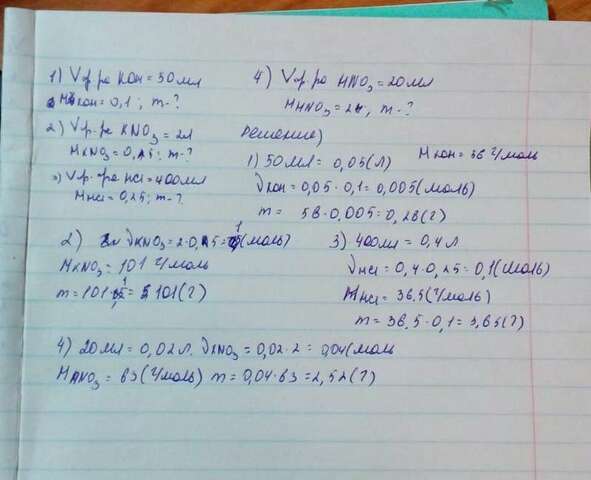 1) Vр-ра KOH = 50 мл
MKOH = 0,1 ; m - ?
2) Vр-ра KNO3 = 2л
MKNO3 = 0, 5 ; m - ?
3) Vр-ра HCl = 400мл
MHCl = 0,25 ; m - ?
4) Vр-ра HNO3 = 20мл
MHNO3 = 2 , m - ?
Решение)
1) 50 мл = 0,05 (л)
MKOH = 56 г/моль
νKOH = 0,05 · 0,1 = 0,005 (моль)
m = 56 · 0,005 = 0,28 (г)
2) νKNO3 = 2 · 0, 5 = 1 (моль)
MKNO3 = 101 г/моль
m = 101 · 1 = 101 (г)
3) 400мл = 0,4 л
νHCl = 0,4 · 0,25 = 0,1 (моль)
MHCl = 36,5 (г/моль)
m = 36,5 · 0,1 = 3,65 (г)
4) 20 мл = 0,02 л. νKNO3 = 0,02 · 2 = 0,04 (моль
MHNO3 = 63 (г/моль) m = 0,04 · 63 = 2,52 (г)